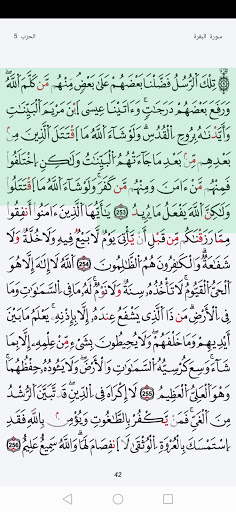 سورة البقرة
الحزب 5
۞ تِلْكَ ٱلرُّسُلُ فَضَّلْنَا بَعْضَهُمْ عَلَىٰ بَعْضٍۘ مِّنْهُم مَّن كَلَّمَ ٱللَّهُۖ
وَرَفَعَ بَعْضَهُمْ دَرَجَٰتٍۚ وَءَاتَيْنَا عِيسَى ٱبْنَ مَرْيَمَ ٱلْبَيِّنَٰتِ
وَأَيَّدْنَٰهُ بِرُوحِ ٱلْقُدُسِۗ وَلَوْ شَآءَ ٱللَّهُ مَا ٱقْتَتَلَ ٱلَّذِينَ مِنۢ
بَعْدِهِم مِّنۢ بَعْدِ مَا جَآءَتْهُمُ ٱلْبَيِّنَٰتُ وَلَٰكِنِ ٱخْتَلَفُوا۟
فَمِنْهُم مَّنْ ءَامَنَ وَمِنْهُم مَّن كَفَرَۚ وَلَوْ شَآءَ ٱللَّهُ مَا ٱقْتَتَلُوا۟
وَلَٰكِنَّ ٱللَّهَ يَفْعَلُ مَا يُرِيدُ 253 يَٰٓأَيُّهَا ٱلَّذِينَ ءَامَنُوٓا۟ أَنفِقُوا۟
مِمَّا رَزَقْنَٰكُم مِّن قَبْلِ أَن يَأْتِىَ يَوْمٌ لَّا بَيْعٌ فِيهِ وَلَا خُلَّةٌ وَلَا
شَفَٰعَةٌۗ وَٱلْكَٰفِرُونَ هُمُ ٱلظَّٰلِمُونَ 254 ٱللَّهُ لَآ إِلَٰهَ إِلَّا هُوَ
ٱلْحَىُّ ٱلْقَيُّومُۚ لَا تَأْخُذُهُۥ سِنَةٌ وَلَا نَوْمٌۚ لَّهُۥ مَا فِى ٱلسَّمَٰوَٰتِ وَمَا
فِى ٱلْأَرْضِۗ مَن ذَا ٱلَّذِى يَشْفَعُ عِندَهُۥٓ إِلَّا بِإِذْنِهِۦۚ يَعْلَمُ مَا بَيْنَ
أَيْدِيهِمْ وَمَا خَلْفَهُمْۖ وَلَا يُحِيطُونَ بِشَىْءٍ مِّنْ عِلْمِهِۦٓ إِلَّا بِمَا
شَآءَۚ وَسِعَ كُرْسِيُّهُ ٱلسَّمَٰوَٰتِ وَٱلْأَرْضَۖ وَلَا يَـُٔودُهُۥ حِفْظُهُمَاۚ
وَهُوَ ٱلْعَلِىُّ ٱلْعَظِيمُ 255 لَآ إِكْرَاهَ فِى ٱلدِّينِۖ قَد تَّبَيَّنَ ٱلرُّشْدُ
مِنَ ٱلْغَىِّۚ فَمَن يَكْفُرْ بِٱلطَّٰغُوتِ وَيُؤْمِنۢ بِٱللَّهِ فَقَدِ
ٱسْتَمْسَكَ بِٱلْعُرْوَةِ ٱلْوُثْقَىٰ لَا ٱنفِصَامَ لَهَاۗ وَٱللَّهُ سَمِيعٌ عَلِيمٌ 256
42